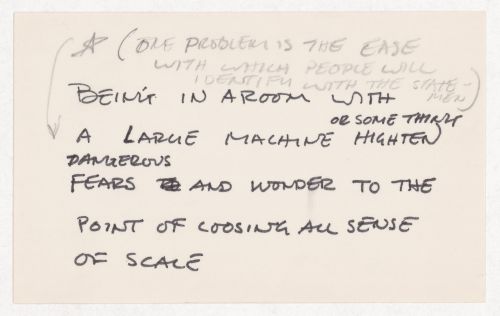 ☆ (ONE PROBLEM IS THE EASE
WITH WHICH PEOPLE WILL
IDENTIFY WITH THE STATE-
MEN)
BEING IN A ROOM WITH
OR SOME THING
A LARGE MACHINE HIGHTEN
DANGEROUS
FEARS AND WONDER TO THE
POINT OF LOOSING ALL SENSE
OF SCALE